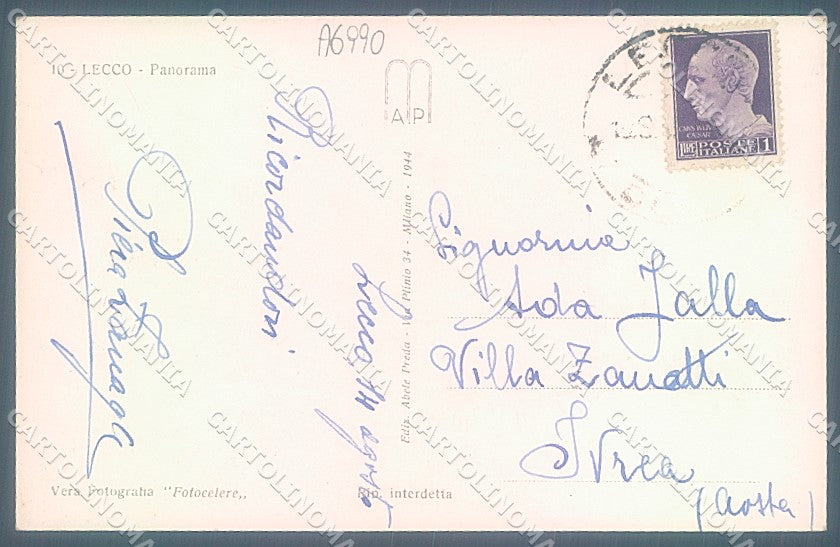 A6990
10 - LECCO - Panorama
MAP
Ricordandoti
Lecco 14 agosto
Piera
Ediz. Abele Preda - Via Plinio 34 - Milano - 1944
CAIVS IVLIVS
CAESAR
LIRE POSTE ITALIANE 1
Signorina
Ada Jalla
Villa Zanetti
Ivrea
(Aosta)
Vera Fotografia "Fotocelere,,
Rip. interdetta
CARTOLINOMANIA